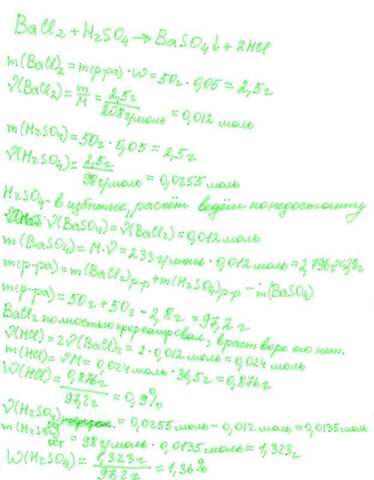 BaCl₂ + H₂SO₄ → BaSO₄↓ + 2HCl
m(BaCl₂) = m(р-ра) · W = 50г · 0,05 = 2,5г
ν(BaCl₂) = m/M = 2,5г / 208г/моль = 0,012 моль
m(H₂SO₄) = 50г · 0,05 = 2,5г
ν(H₂SO₄) = 2,5г / 98г/моль = 0,0255 моль
H₂SO₄ - в избытке, расчёт ведём по недостатку
ν(BaSO₄) = ν(BaCl₂) = 0,012 моль
m(BaSO₄) = M · ν = 233 г/моль · 0,012 моль = 2,796г ≈ 2,8г
m(р-ра) = m(BaCl₂)р-р + m(H₂SO₄)р-р - m(BaSO₄)
m(р-ра) = 50г + 50г - 2,8г = 97,2г
BaCl₂ полностью прореагировал, в растворе его нет.
ν(HCl) = 2ν(BaCl₂) = 2 · 0,012 моль = 0,024 моль
m(HCl) = νM = 0,024 моль · 36,5г = 0,876г
W(HCl) = 0,876г / 97,2г = 0,9%
ν(H₂SO₄) = 0,0255 моль - 0,012 моль = 0,0135 моль
m(H₂SO₄)ост = 98 г/моль · 0,0135 моль = 1,323г
W(H₂SO₄) = 1,323г / 97,2г = 1,36%